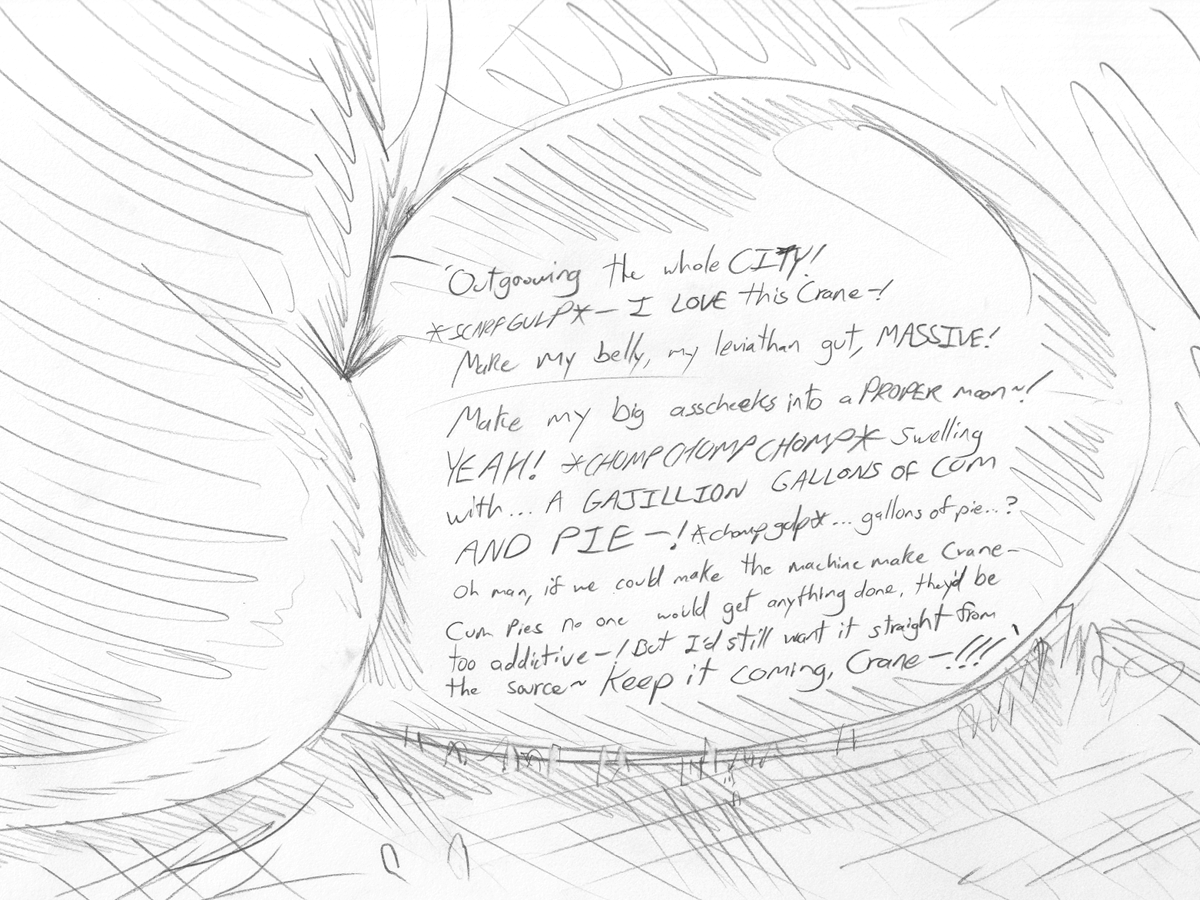 "Outgrowing the whole CITY!
*SCARF GULP* — I LOVE this Crane—!
Make my belly, my leviathan gut, MASSIVE!
Make my big asscheeks into a PROPER moon~!
YEAH! *CHOMP CHOMP CHOMP* swelling
with... A GAJILLION GALLONS OF CUM
AND PIE —! *chomp gulp* ... gallons of pie...?
Oh man, if we could make the machine make Crane—
Cum Pies no one would get anything done, they'd be
too addictive —! But I'd still want it straight from
the source~ Keep it coming, Crane —!!!!"